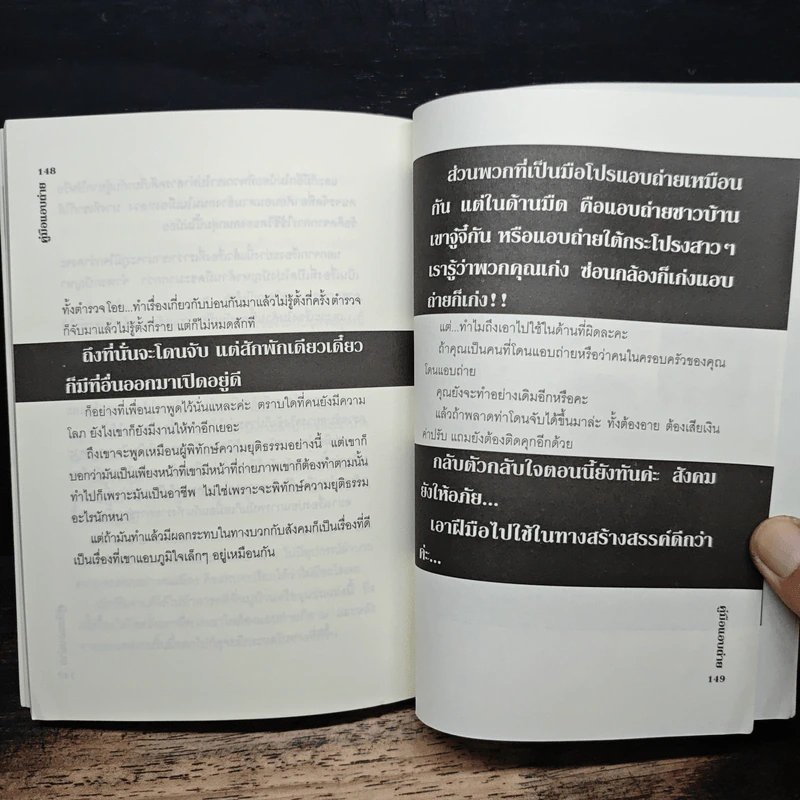 148
คู่มือแอบถ่าย
ทั้งตำรวจโอย...ทำเรื่องเกี่ยวกับบ่อนกันมาแล้วไม่รู้ตั้งกี่ครั้ง ตำรวจ
ก็จับมาแล้วไม่รู้ตั้งกี่ราย แต่ก็ไม่หมดสักที
ถึงที่นั่นจะโดนจับ แต่สักพักเดียวเดี๋ยว
ก็มีที่อื่นออกมาเปิดอยู่ดี
ก็อย่างที่เพื่อนเราพูดไว้นั่นแหละค่ะ ตราบใดที่คนยังมีความ
โลภ ยังไงเขาก็ยังมีงานให้ทำอีกเยอะ
ถึงเขาจะพูดเหมือนผู้พิทักษ์ความยุติธรรมอย่างนี้ แต่เขาก็
บอกว่ามันเป็นเพียงหน้าที่เขามีหน้าที่ถ่ายภาพเขาก็ต้องทำตามนั้น
ทำไปก็เพราะมันเป็นอาชีพ ไม่ใช่เพราะจะพิทักษ์ความยุติธรรม
อะไรนักหนา
แต่ถ้ามันทำแล้วมีผลกระทบในทางบวกกับสังคมก็เป็นเรื่องที่ดี
เป็นเรื่องที่เขาแอบภูมิใจเล็กๆ อยู่เหมือนกัน
ส่วนพวกที่เป็นมือโปรแอบถ่ายเหมือน
กัน แต่ในด้านมืด คือแอบถ่ายชาวบ้าน
เขาจู๋จี๋กัน หรือแอบถ่ายใต้กระโปรงสาวๆ
เรารู้ว่าพวกคุณเก่ง ซ่อนกล้องก็เก่งแอบ
ถ่ายก็เก่ง!!
แต่...ทำไมถึงเอาไปใช้ในด้านที่ผิดละคะ
ถ้าคุณเป็นคนที่โดนแอบถ่ายหรือว่าคนในครอบครัวของคุณ
โดนแอบถ่าย
คุณยังจะทำอย่างเดิมอีกหรือคะ
แล้วถ้าพลาดท่าโดนจับได้ขึ้นมาล่ะ ทั้งต้องอาย ต้องเสียเงิน
ค่าปรับ แถมยังต้องติดคุกอีกด้วย
กลับตัวกลับใจตอนนี้ยังทันค่ะ สังคม
ยังให้อภัย...
เอาฝีมือไปใช้ในทางสร้างสรรค์ดีกว่า
ค่ะ...
คู่มือแอบถ่าย
149